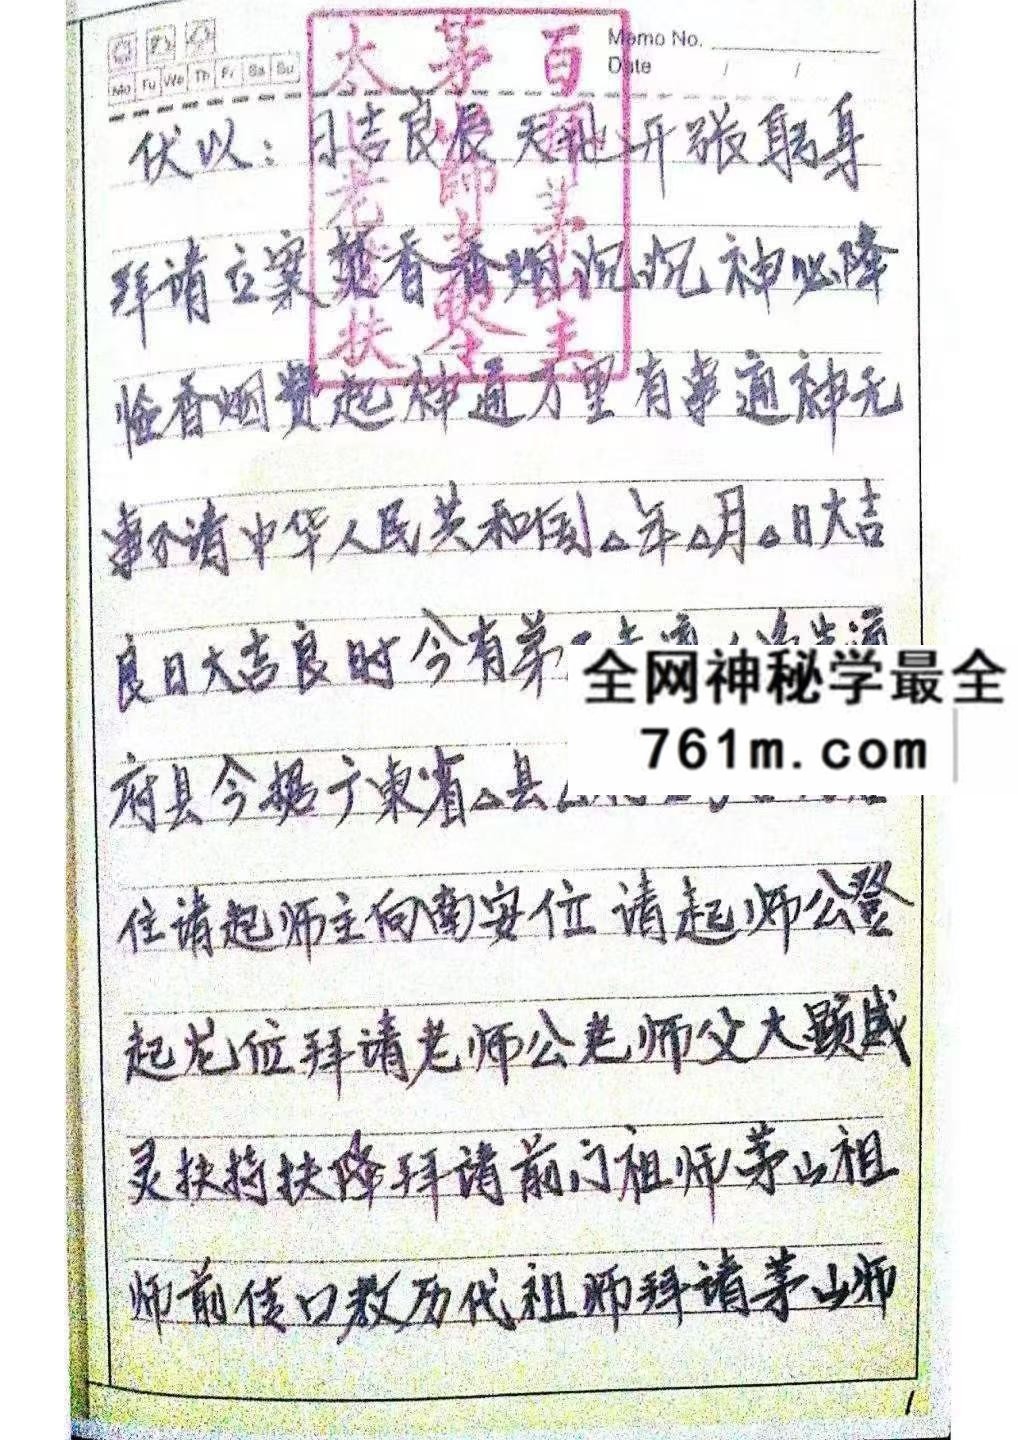 Memo No.
Date / /
Mo Tu We Th Fr Sa Su
伏以：日吉良辰天地开张躬身
拜请立案焚香香烟沉沉神必降
临香烟赞起神通万里有事通神无
事不请中华人民共和国△年△月△日大吉
良日大吉良时今有弟
全网神秘学最全
761m.com
府县今据广东省△县△
住请起师主向南安位请起师公登
起龙位拜请老师公老师父大显威
灵扶持扶降拜请前门祖师茅山祖
师前传口教历代祖师拜请茅山师
1